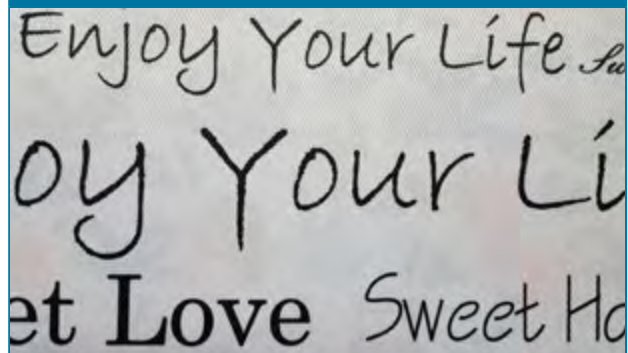 Enjoy Your Life
oy Your Li
et Love Sweet Ho